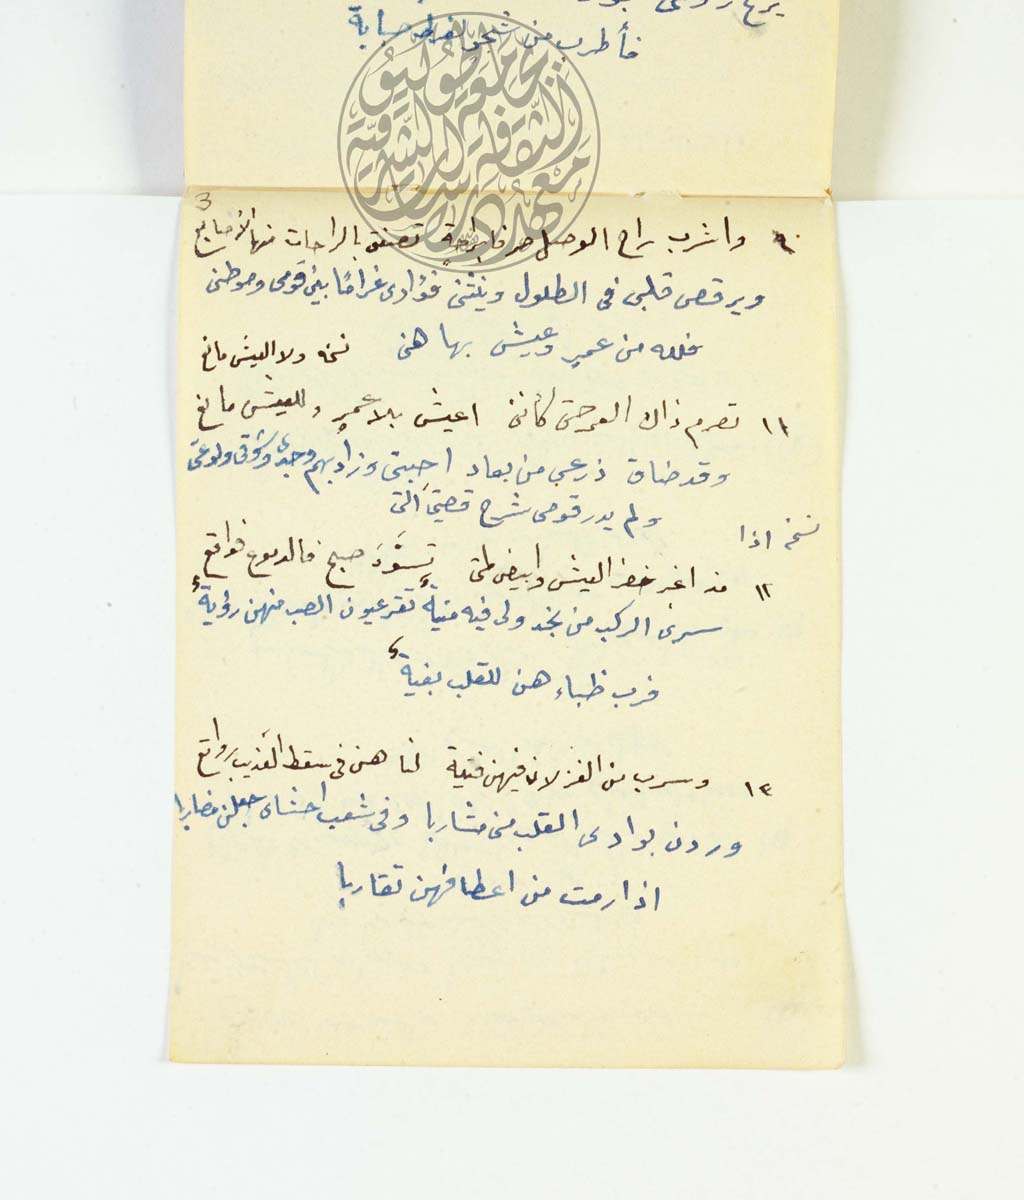 فأطرب من شجو لفرط صبابة
جامعة طوكيو
معهد دراسات الثقافة الشرقية
3
١٠ واشرب راح الوصل صرفا براحة تصفق بالراحات منها الأصابع
ويرقص قلبي في الطلول وينثني فؤادي غراما بين قومي وموطني
فلله من عمر وعيش بها هني نسخه ولا العيش مانع
١١ تصرم ذاك العمر حتى كأنني اعيش بلا عمر وللعيش مانع
وقد ضاق ذرعي من بعاد احبتي وزاد بهم وجدي وشوقي ولوعتي
ولم يدر قومي شرح قصتي التي
نسخه اذا
١٢ مذ اغبر خضر العيش وابيض لمتي تسود صبح فالدموع فواقع
سرى الركب من نجد ولي فيه منية تقر عيون الصب منهن رؤية
فرب ظباء هن للقلب بغية
١٣ وسرب من الغزلان فيهن فتية لنا هن في سقط العذيب رواتع
وردن بوادى القلب مني مشاربا وفي شعب احشاي جعلن مضاربا
اذا رمت من اعطافهن تقاربا